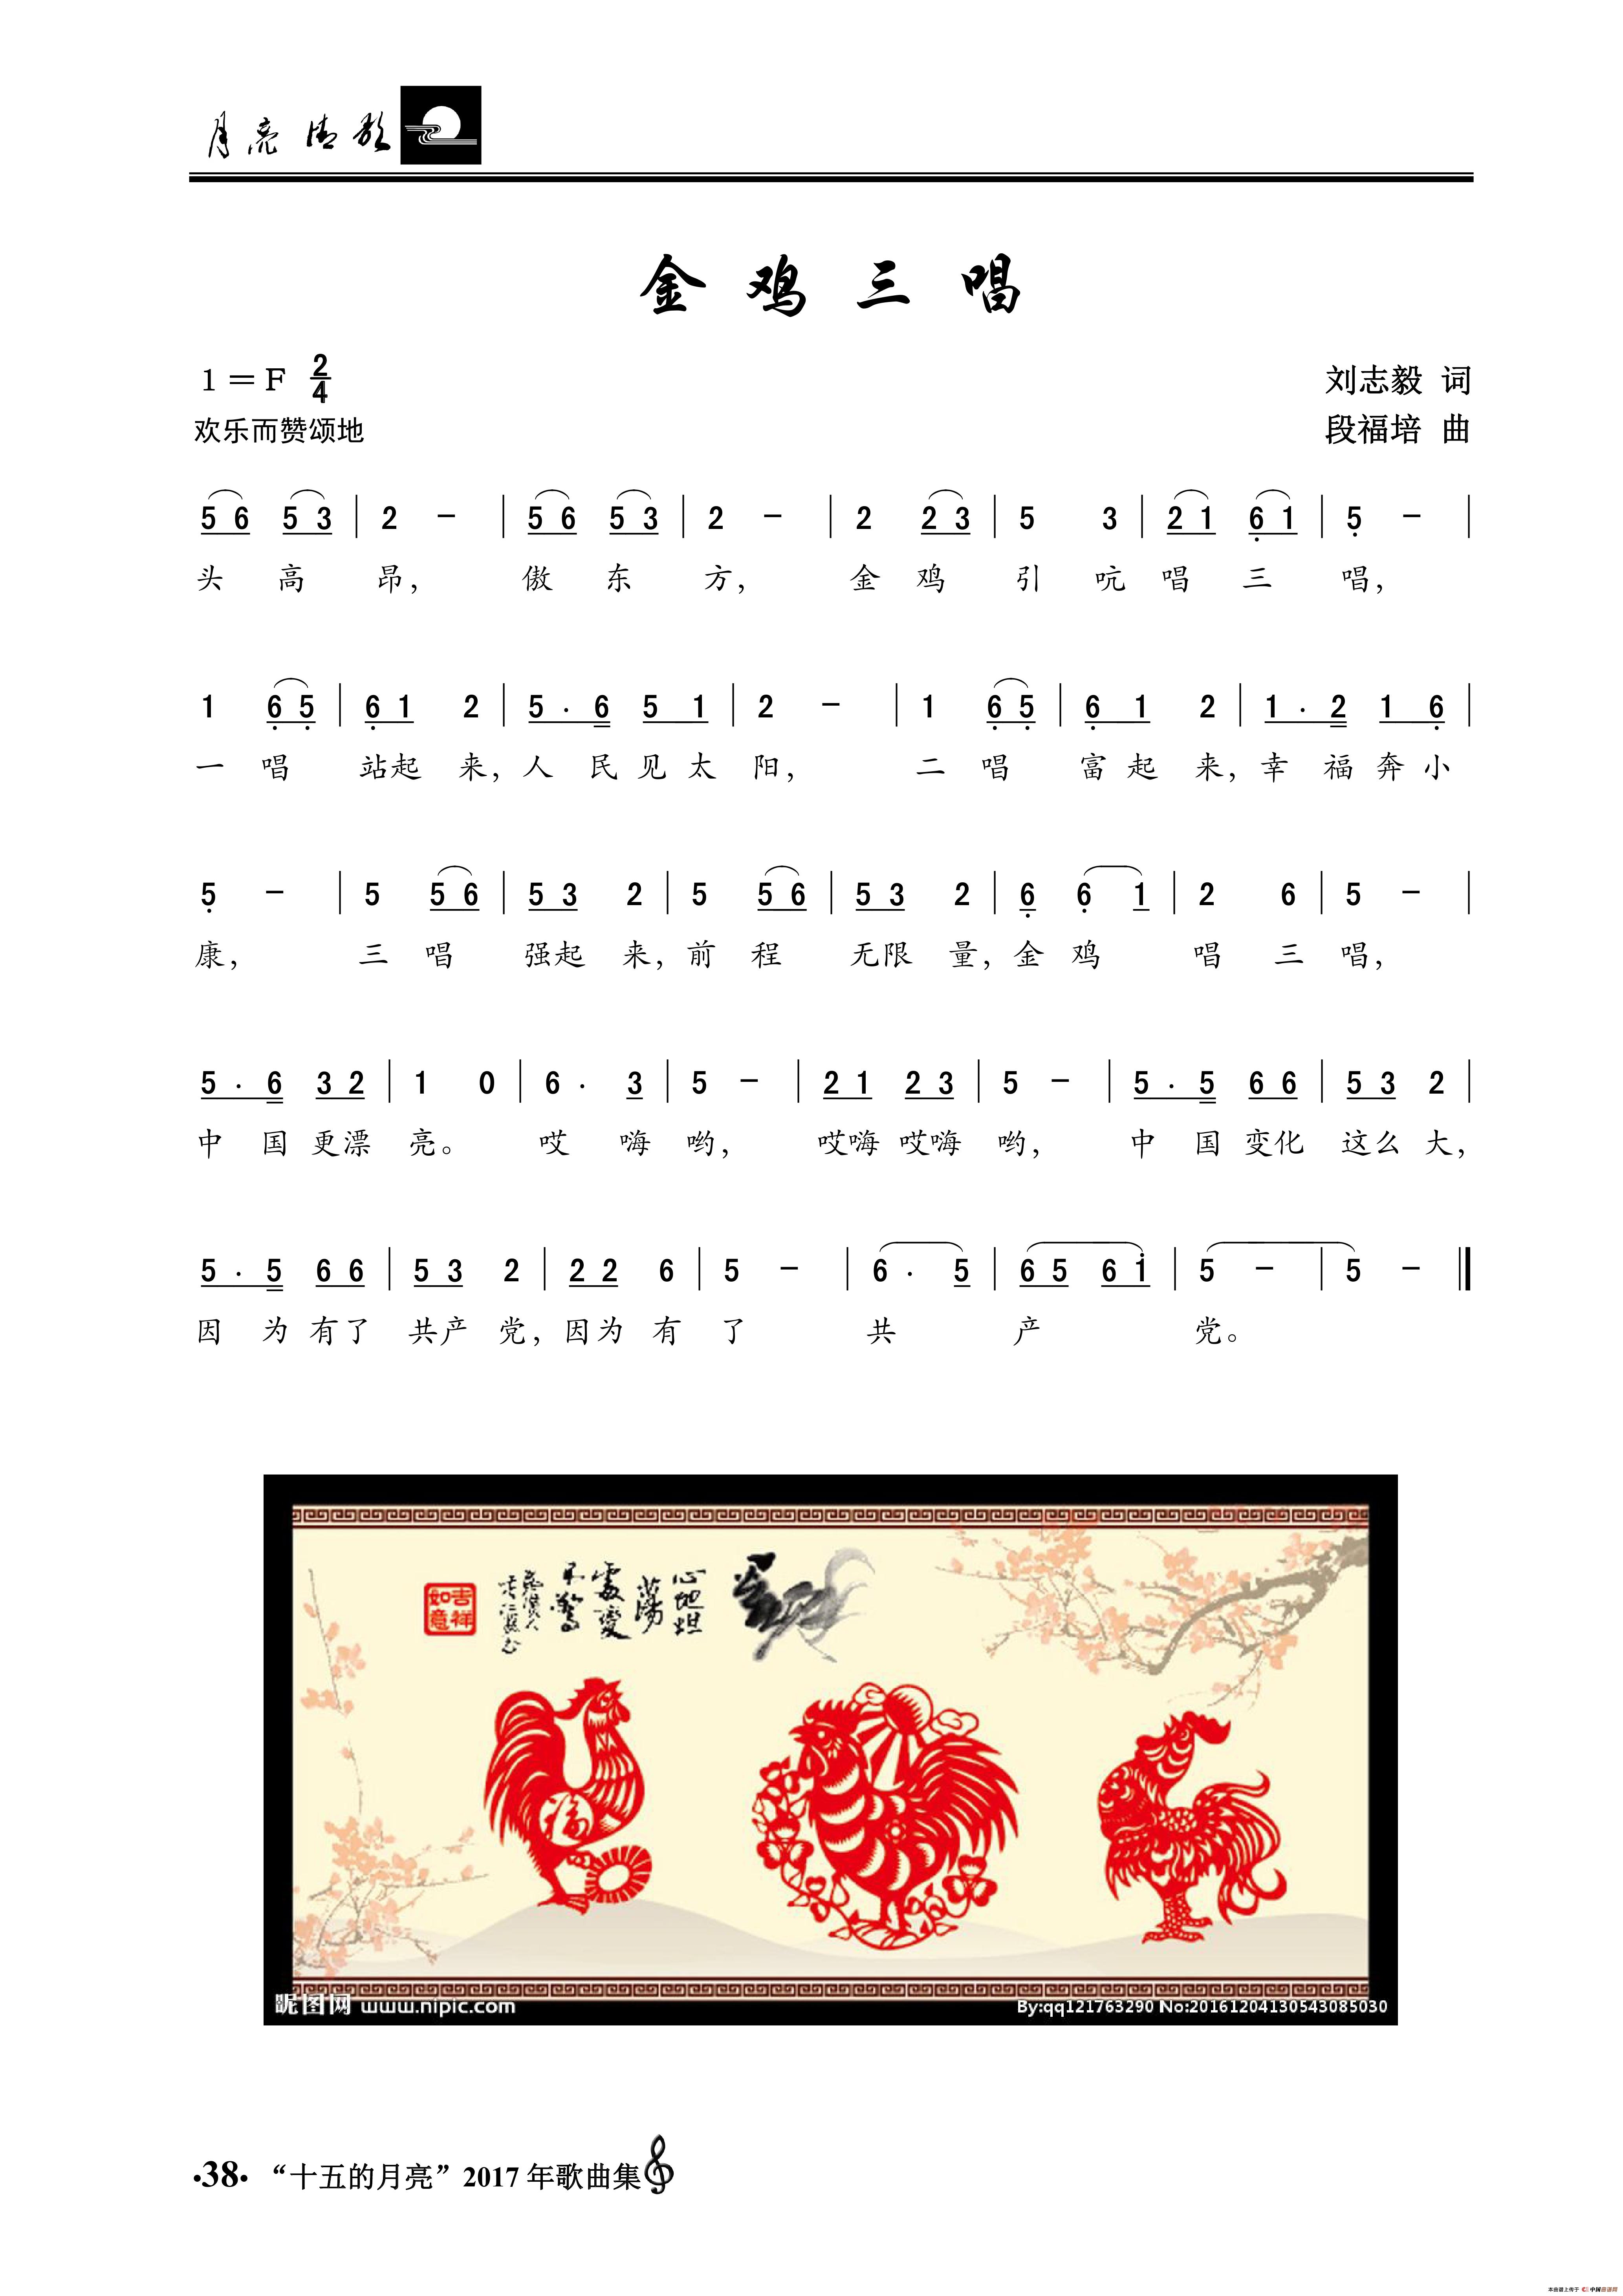 月亮清歌
金鸡三唱
1=F 2/4
刘志毅 词
欢乐而赞颂地
段福培 曲
5 6 5 3 | 2 - | 5 6 5 3 | 2 - | 2 2 3 | 5 3 | 2 1 6̣ 1 | 5̣ - |
头 高 昂, 傲 东 方, 金 鸡 引 吭 唱 三 唱,
1 6̣ 5̣ | 6̣ 1 2 | 5 · 6 5 1 | 2 - | 1 6̣ 5̣ | 6̣ 1 2 | 1 · 2 1 6̣ |
一 唱 站起 来, 人 民 见 太 阳, 二 唱 富 起 来, 幸 福 奔 小
5̣ - | 5 5 6 | 5 3 2 | 5 5 6 | 5 3 2 | 6̣ 6̣ 1 | 2 6 | 5 - |
康, 三 唱 强起 来, 前 程 无限 量, 金 鸡 唱 三 唱,
5 · 6 3 2 | 1 0 | 6 · 3 | 5 - | 2 1 2 3 | 5 - | 5 · 5 6 6 | 5 3 2 |
中 国 更漂 亮。 哎 嗨 哟, 哎嗨 哎嗨 哟, 中 国 变化 这么 大,
5 · 5 6 6 | 5 3 2 | 2 2 6 | 5 - | 6 · 5 | 6 5 6 1̇ | 5 - | 5 - ‖
因 为 有了 共产 党, 因为 有 了 共 产 党。
心地坦
荡
处变
不惊
吉祥
如意
福
昵图网 www.nipic.com
By:qq121763290 No:20161204130543085030
·38· “十五的月亮”2017年歌曲集
本曲谱上传于 中国曲谱网